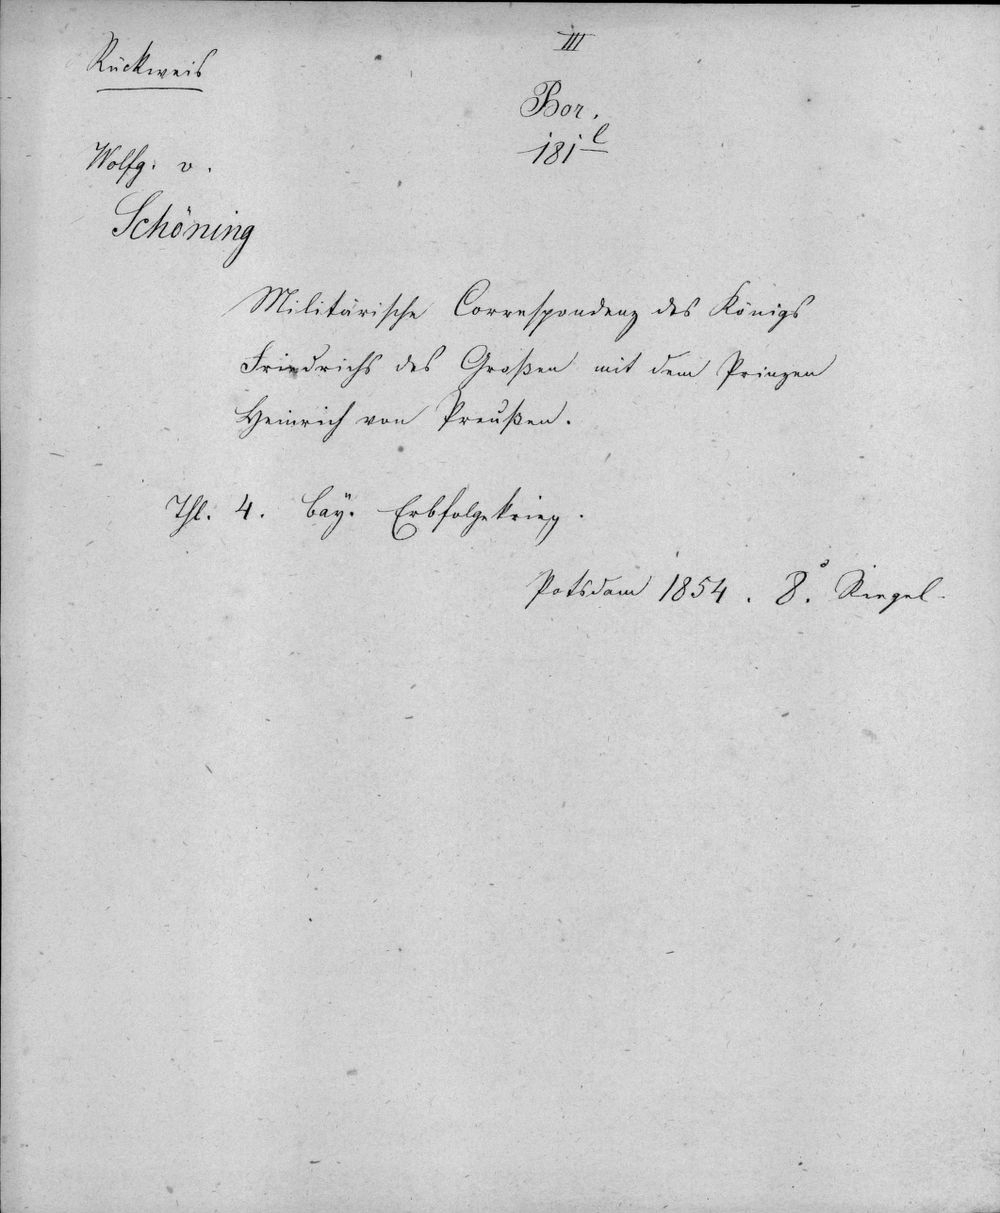 III
Rückweis
Bor.
181 l
Wolfg. v.
Schöning
Militärische Correspondenz des Königs
Friedrichs des Großen mit dem Prinzen
Heinrich von Preußen.
Thl. 4. bay. Erbfolgekrieg.
Potsdam 1854. 8o. Riegel.